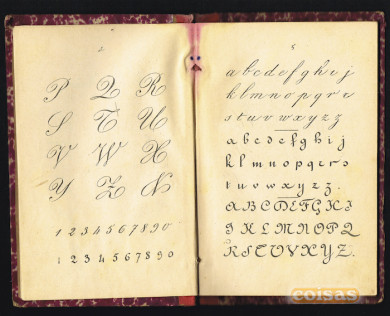 4
P Q R
S T U
V W X
Y Z N
1 2 3 4 5 6 7 8 9 0
1 2 3 4 5 6 7 8 9 0
5
a b c d e f g h i j
k l m n o p q r s
t u v w x y z z
a b c d e f g h i j
k l m n o p q r s
t u v w x y z z.
A B C D E F G H I
J K L M N O P Q
R S T U V X Y Z.
coisas